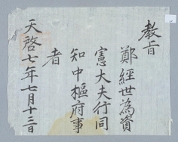 教旨
鄭經世為資
憲大夫行同
知中樞府事
者
天啓七年七月十三日